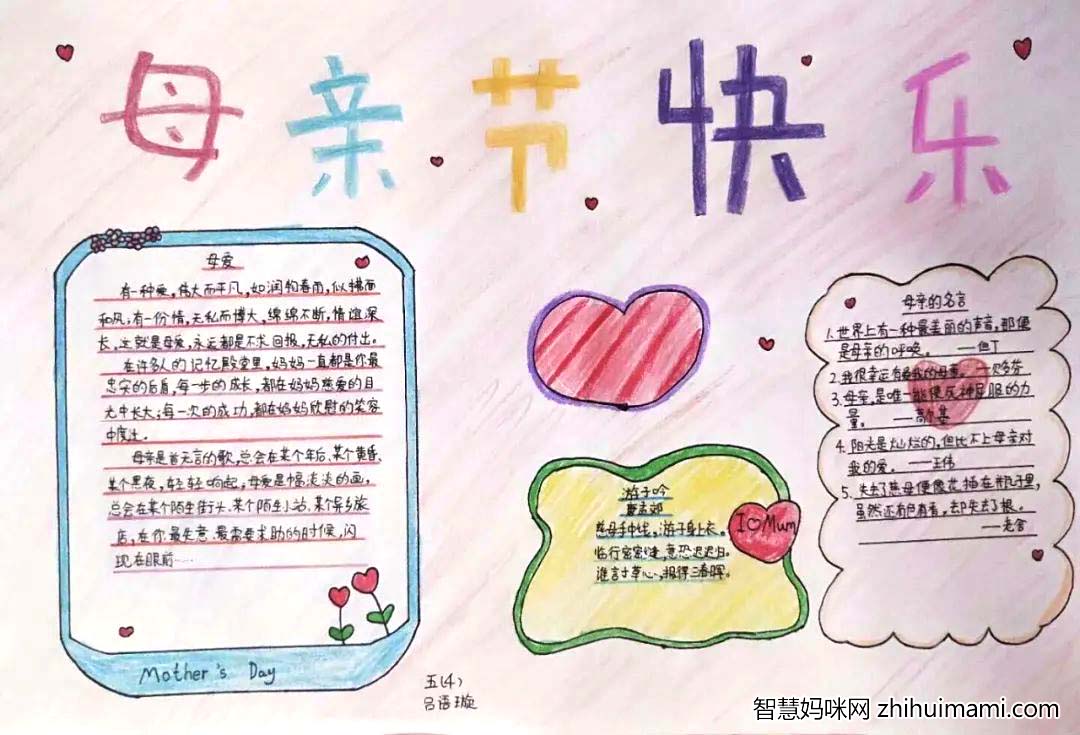 母亲节快乐
母爱
有一种爱，伟大而平凡，如润物春雨，似拂面
和风；有一份情，无私而博大，绵绵不断，情谊深
长，这就是母爱，永远都是不求回报，无私的付出。
在许多人的记忆殿堂里，妈妈一直都是你最
忠实的后盾，每一步的成长，都在妈妈慈爱的目
光中长大；每一次的成功，都在妈妈欣慰的笑容
中度过。
母亲是首无言的歌，总会在某个午后、某个黄昏、
某个黑夜，轻轻响起，母爱是幅淡淡的画，
总会在某个陌生街头、某个陌生小站、某个异乡旅
店，在你最失意、最需要求助的时候，闪
现在眼前……
Mother's Day
五(4)
吕语璇
游子吟
唐孟郊
慈母手中线，游子身上衣。
临行密密缝，意恐迟迟归。
谁言寸草心，报得三春晖。
I Mum
母亲的名言
1.世界上有一种最美丽的声音，那便
是母亲的呼唤。——但丁
2.我很幸运有爱我的母亲。——贝多芬
3.母亲，是唯一能使死神屈服的力
量。——高尔基
4.阳光是灿烂的，但比不上母亲对
我的爱。——王伟
5.失去了慈母便像花插在瓶子里，
虽然还有色有香，却失去了根。
——老舍
智慧妈咪网 zhihuimami.com